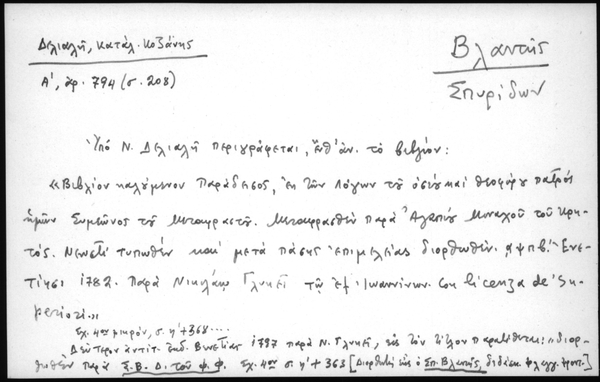 Δελιαλῆ, Κατάλ. Κοζάνης
Α', ἀρ. 794 (σ. 208)
Βλαντῆς
Σπυρίδων
Ὑπό Ν. Δελιαλῆ περιγράφεται, ἔνθ' ἀν. τὸ βιβλίον:
«Βιβλίον καλούμενον Παράδεισος, ἐκ τῶν λόγων τοῦ ὁσίου καὶ θεοφόρου πατρός
ἡμῶν Συμεῶνος τοῦ Μεταφραστοῦ. Μεταφρασθέν παρά Ἀγαπίου Μοναχοῦ τοῦ Κρη-
τός. Νεωστί τυπωθέν καί μετά πάσης ἐπιμελείας διορθωθέν. αψπβ'. Ἐνε-
τίησι 1782. Παρά Νικολάῳ Γλυκεῖ τῷ ἐξ Ἰωαννίνων. Con licenza de' Su-
periori.»
Σχ. 4ον μικρόν, σ. η' + 368....
Δεύτερον ἀντίτ. ἐκδ. Βενετίας 1797 παρά Ν. Γλυκεῖ, εἰς τὸν τίτλον παρατίθεται: «διορ-
θωθέν παρά Σ. Β. Δ. τοῦ Φ. Φ. Σχ. 4ον σ. η' + 363 [Διορθωτής εἶναι ὁ Σπ. Βλαντῆς, διδάσκ. Φλαγγ. Φροντ.]